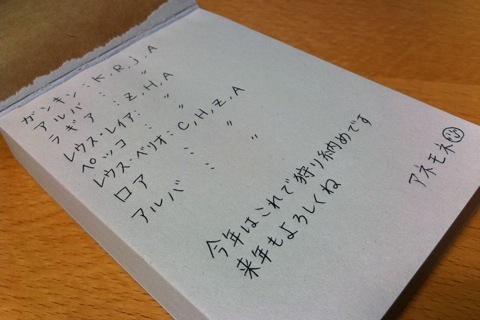 ガンキン：K, R, J, A
アルバ：〃
ラギア：Z, H, A
レウス・レイア：〃
ペッコ：〃
レウス・ベリオ：C, H, Z, A
ロア：〃
アルバ：〃
今年はこれで狩り納めです
来年もよろしくね
アネモネ